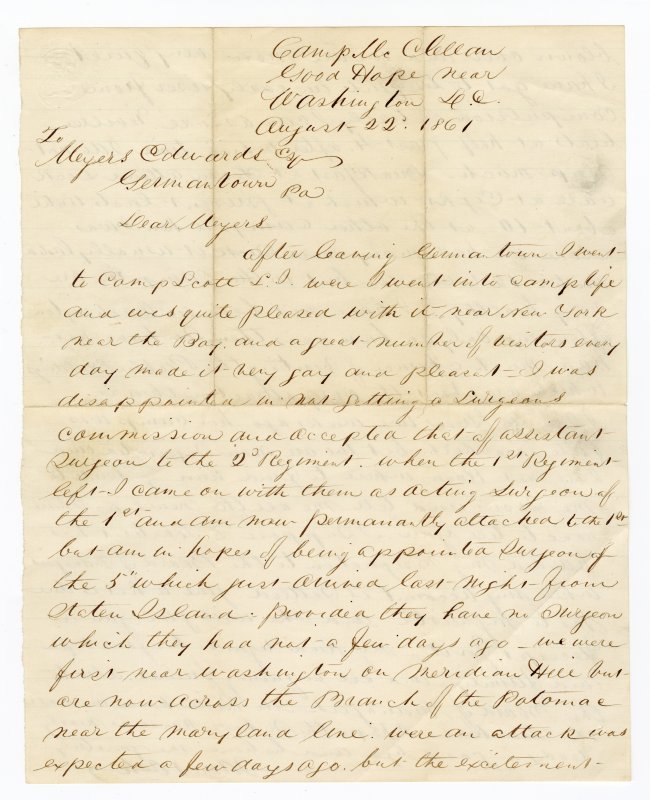 Camp Mc Clellan
Good Hope near
Washington D.C.
August 22d. 1861
To
Meyers Edwards Esq
Germantown
Pa
Dear Meyers
after leaving Germantown I went
to Camp Scott S. I. were I went into camp life
and was quite pleased with it near New York
near the Bay. and a great number of visitors every
day made it very gay and pleasant - I was
disappointed in not getting a Surgeons
commission and accepted that of assistant
Surgeon to the 2d Regiment. when the 1st Regiment
left I came on with them as acting Surgeon of
the 1st and am now permanantly attached to the 1st
but am in hopes of being appointed Surgeon of
the 5th which just arrived last night from
Staten Island. provided they have no Surgeon
which they had not a few days ago - we were
first near Washington on Meridian Hill but
are now across the Branch of the Potomac
near the Maryland line. were an attack was
expected a few days ago. but the excitement